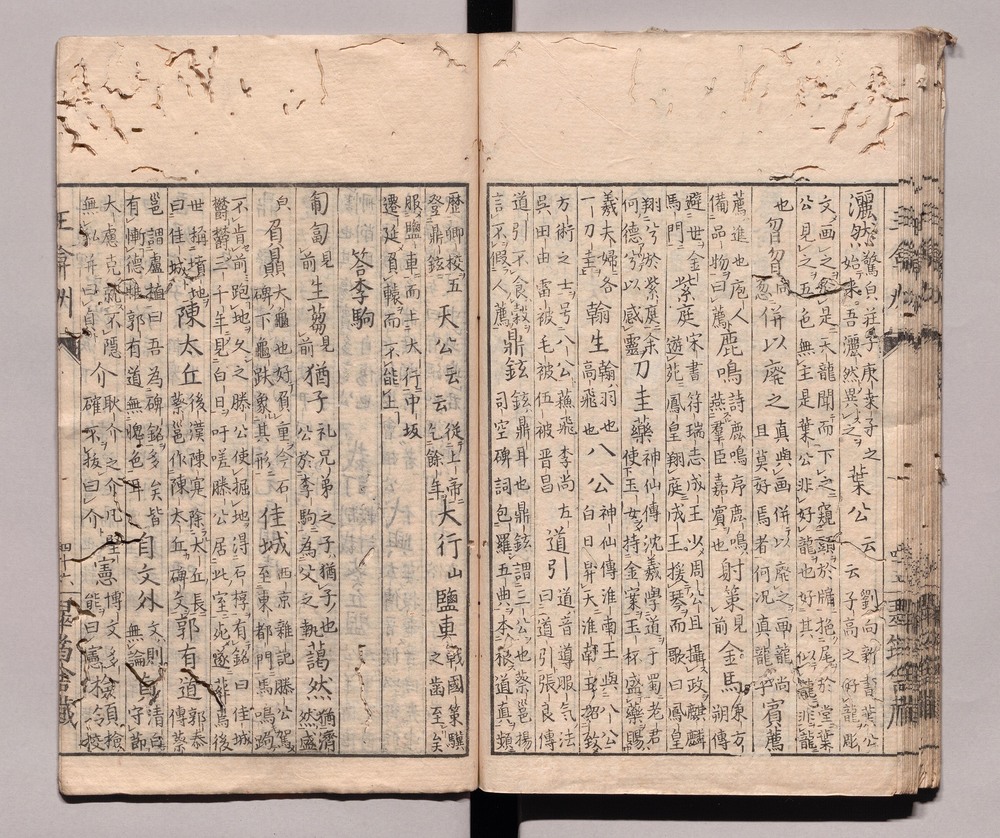 灑然
驚皃莊子庚桑子之
始来吾灑然異之
葉公云云
劉向新書葉公
子高之好龍彫
文画之於是天龍聞而下之窺頭於牖拖尾於堂葉
公見之五色無主是葉公非好龍也好其似龍非龍
也
忽
併以廃之
真與画併以廃之画龍尚
且莫好焉者何况真龍乎
賓薦
薦進也庖人
備品物曰薦
鹿鳴
詩鹿鳴序鹿鳴
燕羣臣嘉賓也
射策
見前
金馬
東方
朔傳
避世金
馬門
紫庭
宋書符瑞志成王少周公旦攝政麟
遊苑鳳皇翔庭成王援琴而歌曰鳳皇
翔兮於紫庭余
何德兮以感靈
刀圭藥
神仙傳沈羲學道于蜀老君
使玉女持金案玉杯盛藥賜
羲夫婦各
一刀圭
翰生
翰羽也
高飛也
八公
神仙傳淮南王與八公
白日昇天淮南王招致
方術之士号八公蘓飛李尚左
吳田由雷被毛被伍被晋昌
道引
道音導服气法
曰道引張良傳
道引不食穀
言不假人薦
鼎鉉
鉉鼎耳也鼎鉉謂三公也蔡邕揚
司空碑詞包羅五典本根道真頬
歷卿校五
登鼎鉉
天公云云
從上帝
乞餘年
大行山鹽車
戰國策驥
之齒至矣
服鹽車而上大行中坂
遷延負轅而不能上
答李駒
匍匐
見前
生蒭
見前
猶子
礼兄弟之子猶子也
公於李駒為父之執
藹然
猶濟
然盛
皃
負贔
大龜也好負重今石
碑下龜趺象其形
佳城
西京雜記滕公駕
至東都門馬鳴跔
不肯前跑地久之滕公使掘地得石椁有銘曰佳城
鬱鬱三千年見白日吁嗟滕公居此室死遂葬焉後
世稱墳地
曰佳城
陳太丘
後漢陳寔除太丘長
蔡邕作陳太丘碑文
郭有道
郭泰
傳蔡
邕謂盧植曰吾為碑銘多矣皆
有慚德唯郭有道無愧色耳
自文外無論自
文則清白
守節
大慮克就
無私併曰貞
介
不隱耿介之介凡堅
確不拔曰介
憲
博文多
能曰憲